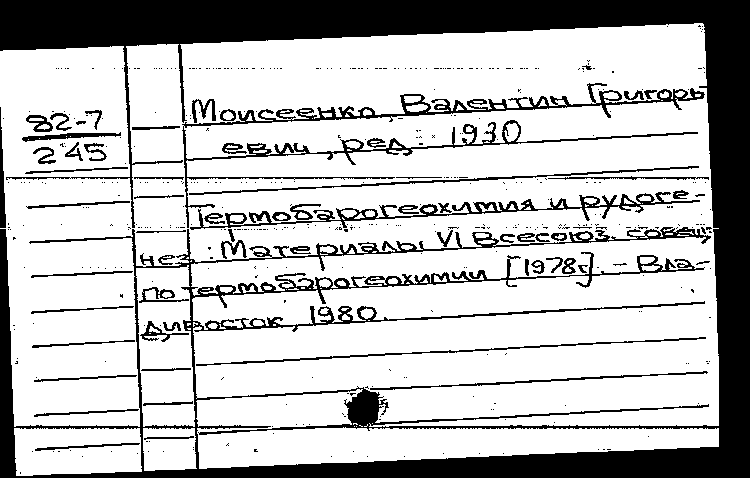 82-7
245
Моисеенко, Валентин Григорь
евич, ред. 1930
Термобарогеохимия и рудоге-
нез : Материалы VI Всесоюз. совещ.
по термобарогеохимии [1978г.]. - Вла-
дивосток, 1980.